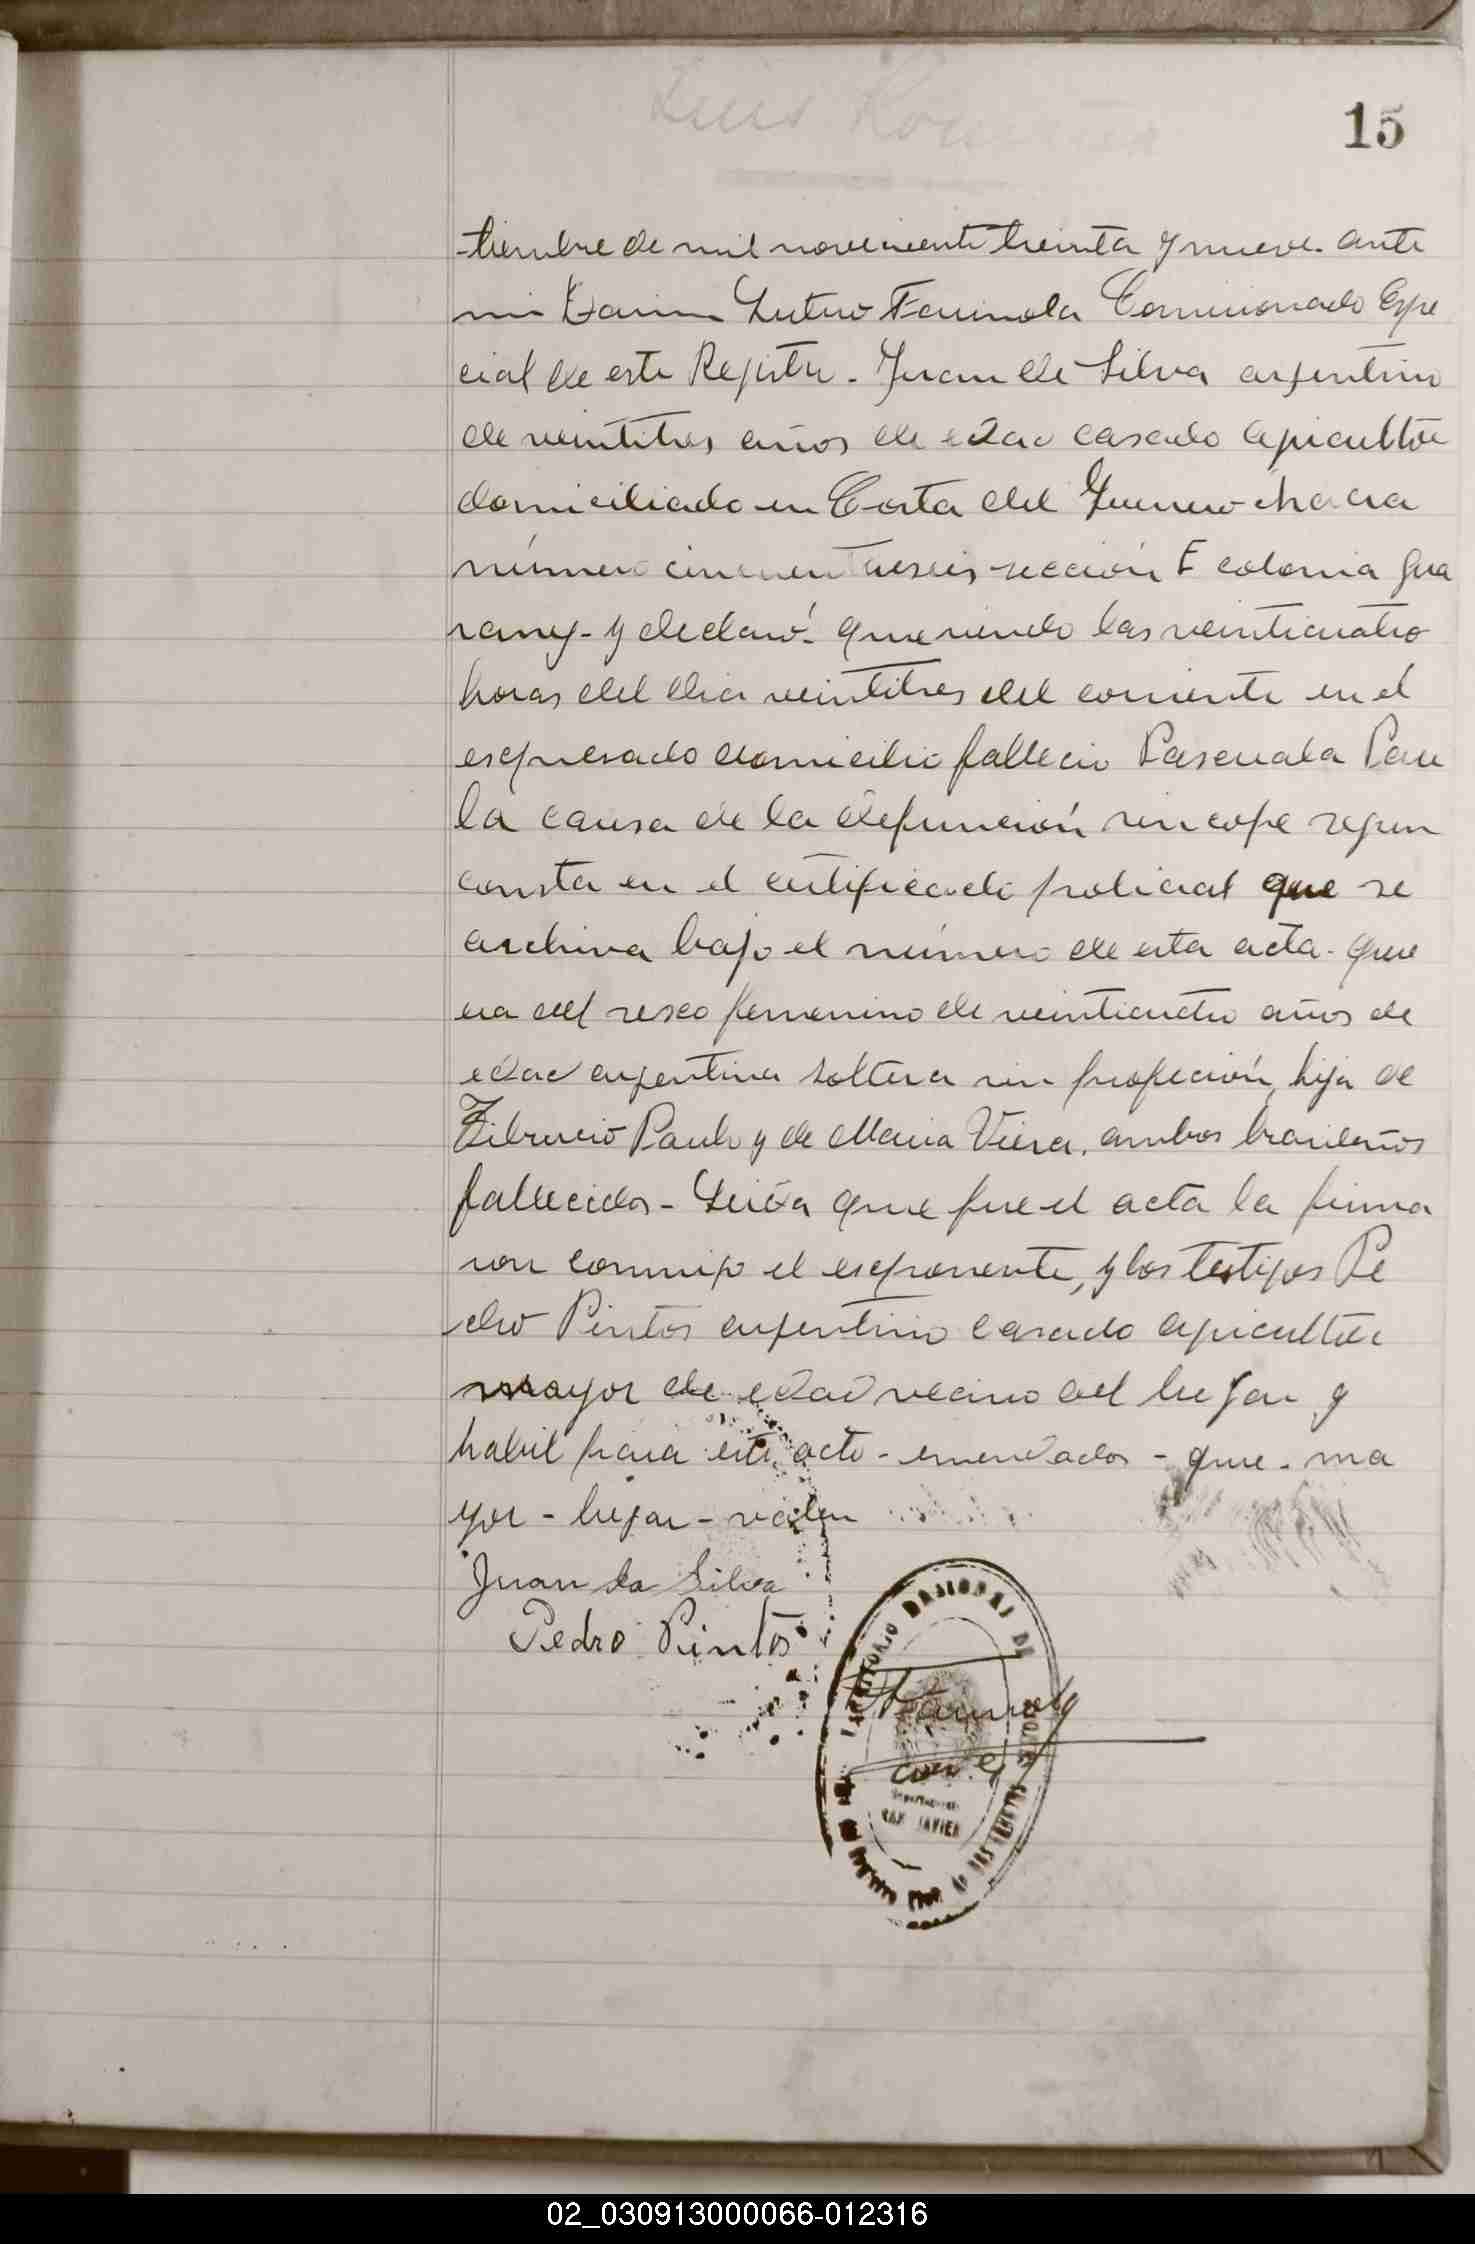 Luis
15
-tiembre de mil noveciento treinta y nueve. ante
mi Lutero Comisionado Espe
cial de este Registro. Juan de Silva argentino
de veintitres años de edad casado agricultor
domiciliado en Costa del Guerrero chacra
número cincuentaiseis sección F colonia Gua
rany. y declaró. que siendo las veinticuatro
horas del dia veintitres del corriente en el
espresado domicilio fallecio Pascuala Pau
la causa de la defunción sincope segun
consta en el certificado policial que se
archiva bajo el número de esta acta. que
era del sexo femenino de veinticuatro años de
edad argentina soltera sin profeción, hija de
Tiburcio Paulo y de Maria Viera. ambos brasileños
fallecidos - Leida que fue el acta la firma
ron conmigo el esponente, y los testigos Pe
dro Pintos argentino casado agricultor
mayor de edad vecino del lugar y
habil para este acto - enmendados - que. ma
yor - lugar - valen
Juan da Silva
Pedro Pintos
TERRITORIO NACIONAL DE
MISIONES
SAN JAVIER
02_030913000066-012316